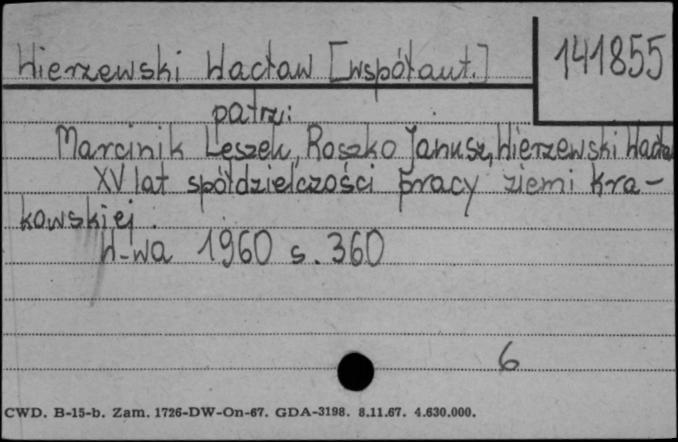 Wierzewski Wacław [współaut.]
141855
patrz:
Marcinik Leszek, Roszko Janusz, Wierzewski Wacław
XV lat spółdzielczości pracy ziemi kra-
kowskiej.
W-wa 1960 s. 360
6
CWD. B-15-b. Zam. 1726-DW-On-67. GDA-3198. 8.11.67. 4.630.000.